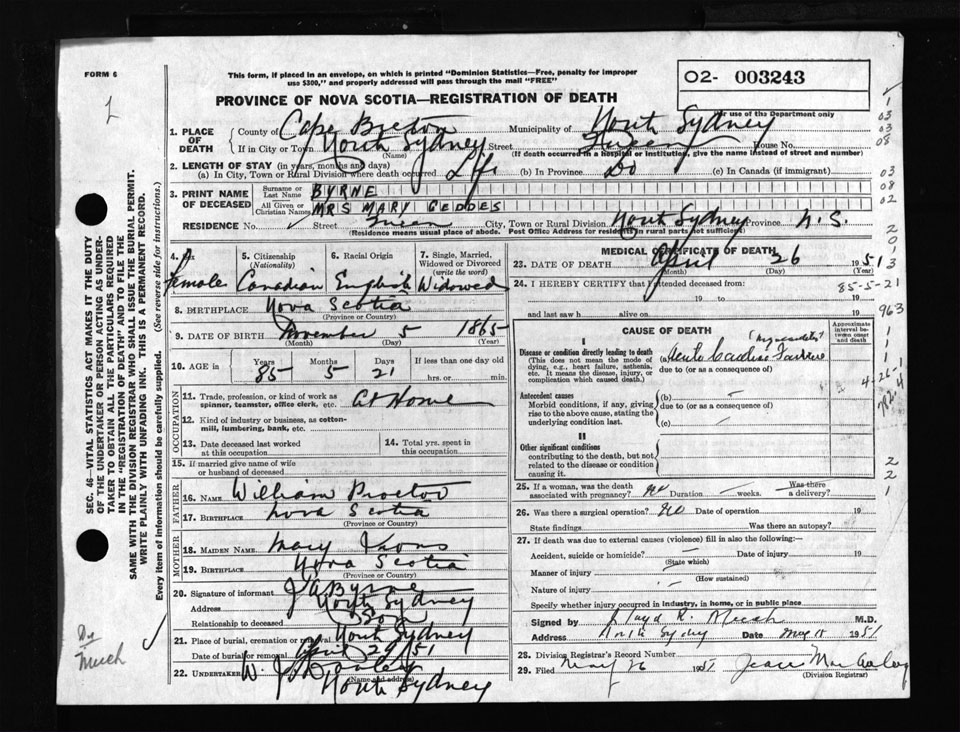 FORM 6
This form, if placed in an envelope, on which is printed "Dominion Statistics—Free, penalty for improper
use $300," and properly addressed will pass through the mail "FREE"
O2- 003243
For use of the Department only
PROVINCE OF NOVA SCOTIA—REGISTRATION OF DEATH
1. PLACE OF DEATH County of Cape Breton Municipality of North Sydney
If in City or Town North Sydney (Name) Street House No.
(If death occurred in a hospital or institution, give the name instead of street and number)
2. LENGTH OF STAY (in years, months and days)
(a) In City, Town or Rural Division where death occurred Life (b) In Province Do (c) In Canada (if immigrant)
3. PRINT NAME OF DECEASED Surname or Last Name BYRNE
All Given or Christian Names MRS MARY GEDDES
RESIDENCE No. Street City, Town or Rural Division North Sydney Province N.S.
(Residence means usual place of abode. Post Office Address for residents in rural parts not sufficient)
4. Female
5. Citizenship (Nationality) Canadian
6. Racial Origin English
7. Single, Married, Widowed or Divorced (write the word) Widowed
8. BIRTHPLACE Nova Scotia
(Province or Country)
9. DATE OF BIRTH November 5 1865
(Month) (Day) (Year)
10. AGE in Years 85 Months 5 Days 21 If less than one day old
hrs. or min.
OCCUPATION
11. Trade, profession, or kind of work as spinner, teamster, office clerk, etc. At Home
12. Kind of industry or business, as cotton-mill, lumbering, bank, etc.
13. Date deceased last worked at this occupation
14. Total yrs. spent in this occupation
15. If married give name of wife or husband of deceased
FATHER
16. NAME William Proctor
17. BIRTHPLACE Nova Scotia
(Province or Country)
MOTHER
18. MAIDEN NAME Mary
19. BIRTHPLACE Nova Scotia
(Province or Country)
20. Signature of informant J A Byrne
Address North Sydney
Relationship to deceased Son
21. Place of burial, cremation or removal North Sydney
Date of burial or removal April 29/51
22. UNDERTAKER W. J. Dooley
(Name and address)
North Sydney
MEDICAL CERTIFICATE OF DEATH
23. DATE OF DEATH April 26 1951
(Month) (Day)
24. I HEREBY CERTIFY that I attended deceased from:
85-5-21
19 to 19
and last saw h alive on 19
CAUSE OF DEATH
Approximate interval between onset and death
I
Disease or condition directly leading to death
(This does not mean the mode of dying, e.g., heart failure, asthenia, etc. It means the disease, injury, or complication which caused death.)
Acute Cardiac Failure
due to (or as a consequence of)
Antecedent causes
Morbid conditions, if any, giving rise to the above cause, stating the underlying condition last.
(b)
due to (or as a consequence of)
(c)
II
Other significant conditions
contributing to the death, but not related to the disease or condition causing it.
25. If a woman, was the death associated with pregnancy? no Duration weeks. Was there a delivery?
26. Was there a surgical operation? no Date of operation 19
State findings Was there an autopsy?
27. If death was due to external causes (violence) fill in also the following:—
Accident, suicide or homicide? Date of injury 19
(State which)
Manner of injury
(How sustained)
Nature of injury
Specify whether injury occurred in industry, in home, or in public place
Signed by M.D.
Address North Sydney Date May 15 1951
28. Division Registrar's Record Number
29. Filed May 26 1951
(Division Registrar)
SEC. 46—VITAL STATISTICS ACT MAKES IT THE DUTY
OF THE UNDERTAKER OR PERSON ACTING AS UNDER-
TAKER TO OBTAIN ALL THE PARTICULARS REQUIRED
IN THE "REGISTRATION OF DEATH" AND TO FILE THE
SAME WITH THE DIVISION REGISTRAR WHO SHALL ISSUE THE BURIAL PERMIT.
WRITE PLAINLY WITH UNFADING INK. THIS IS A PERMANENT RECORD.
Every item of information should be carefully supplied. (See reverse side for instructions.)